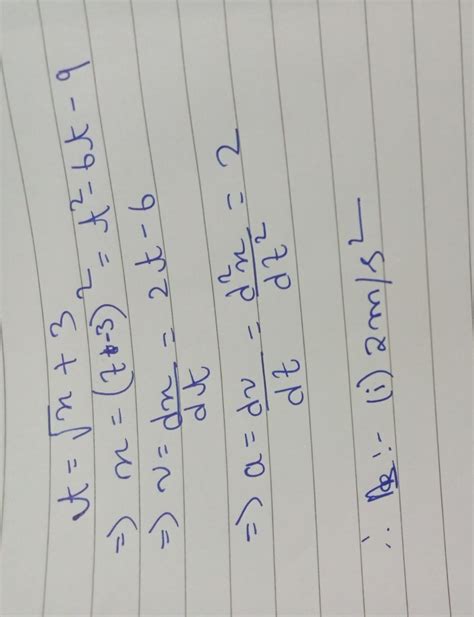 t = √x + 3
⇒ x = (t-3)² = t² - 6t - 9
⇒ v = dx/dt = 2t - 6
⇒ a = dv/dt = d²x/dt² = 2
∴ :- (i) 2m/s²